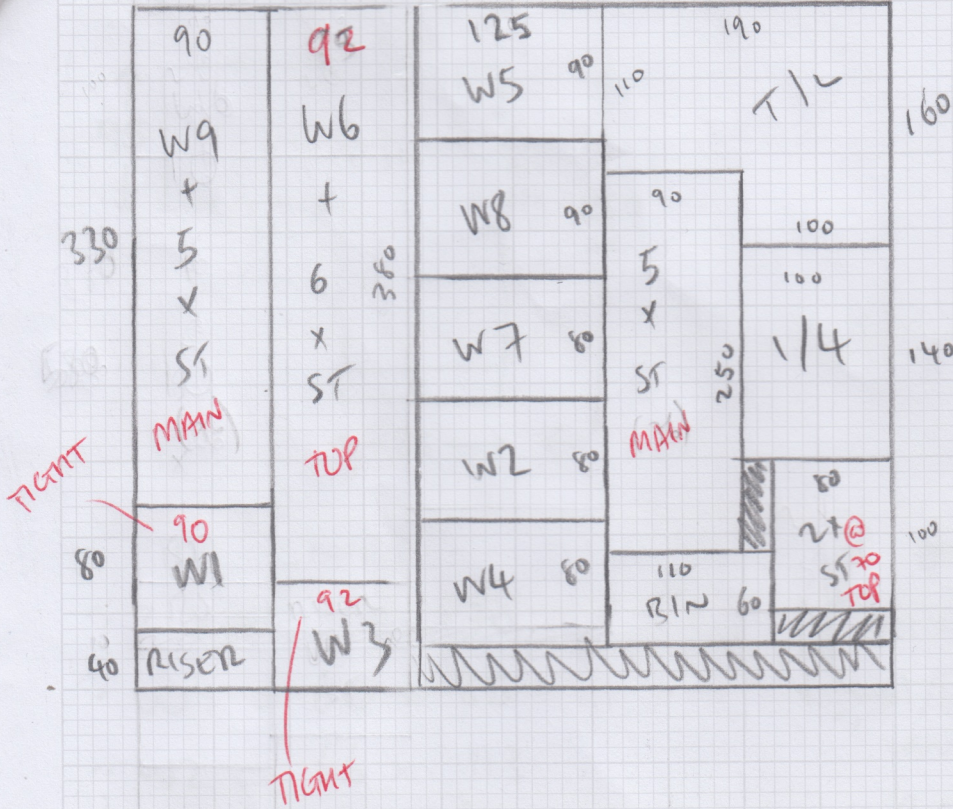 90
W9
+
5
x
ST
MAIN
330
TIGHT
90
W1
80
RISER
40
92
W6
+
6
x
ST
TOP
380
92
W3
TIGHT
125
W5
90
W8
90
W7
80
W2
80
W4
80
190
110
T/L
160
100
90
5
x
ST
MAIN
250
100
1/4
140
80
2x@
ST 70
TOP
100
110
BIN
60